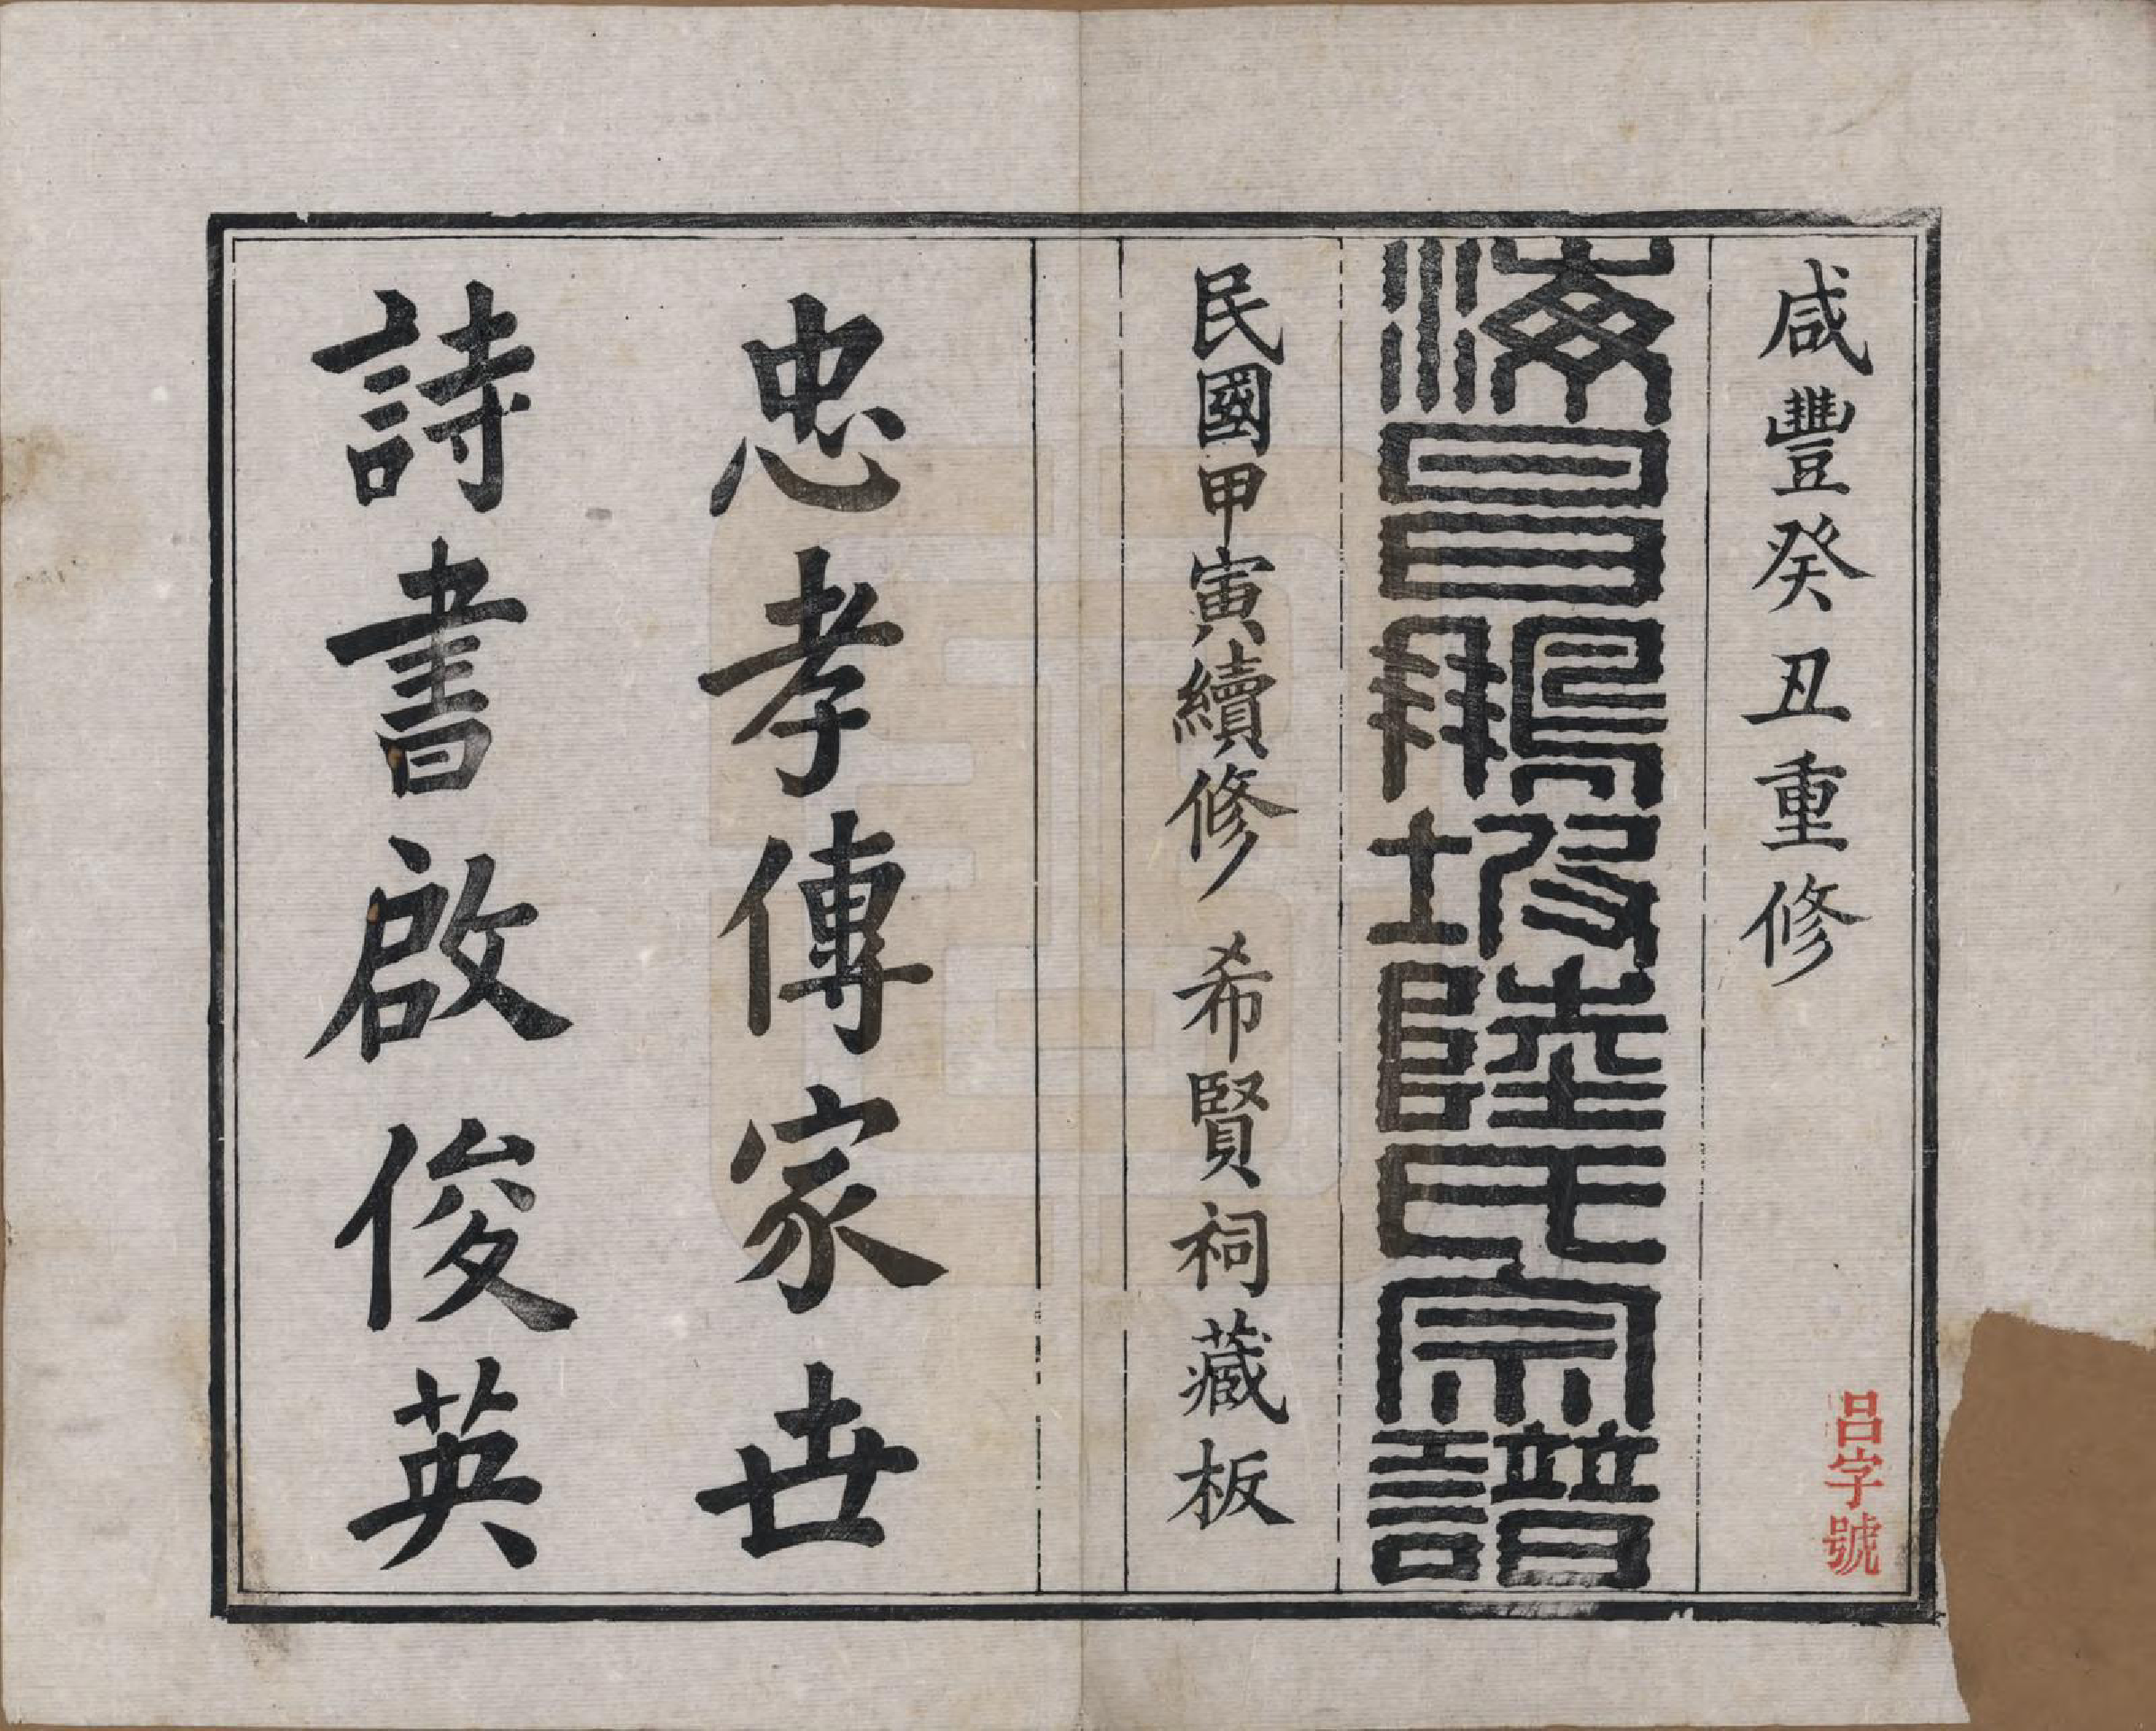 咸豐癸丑重修
海昌鵬坡陸氏宗譜
民國甲寅續修 希賢祠藏板
忠孝傳家世
詩書啟俊英
呂字號